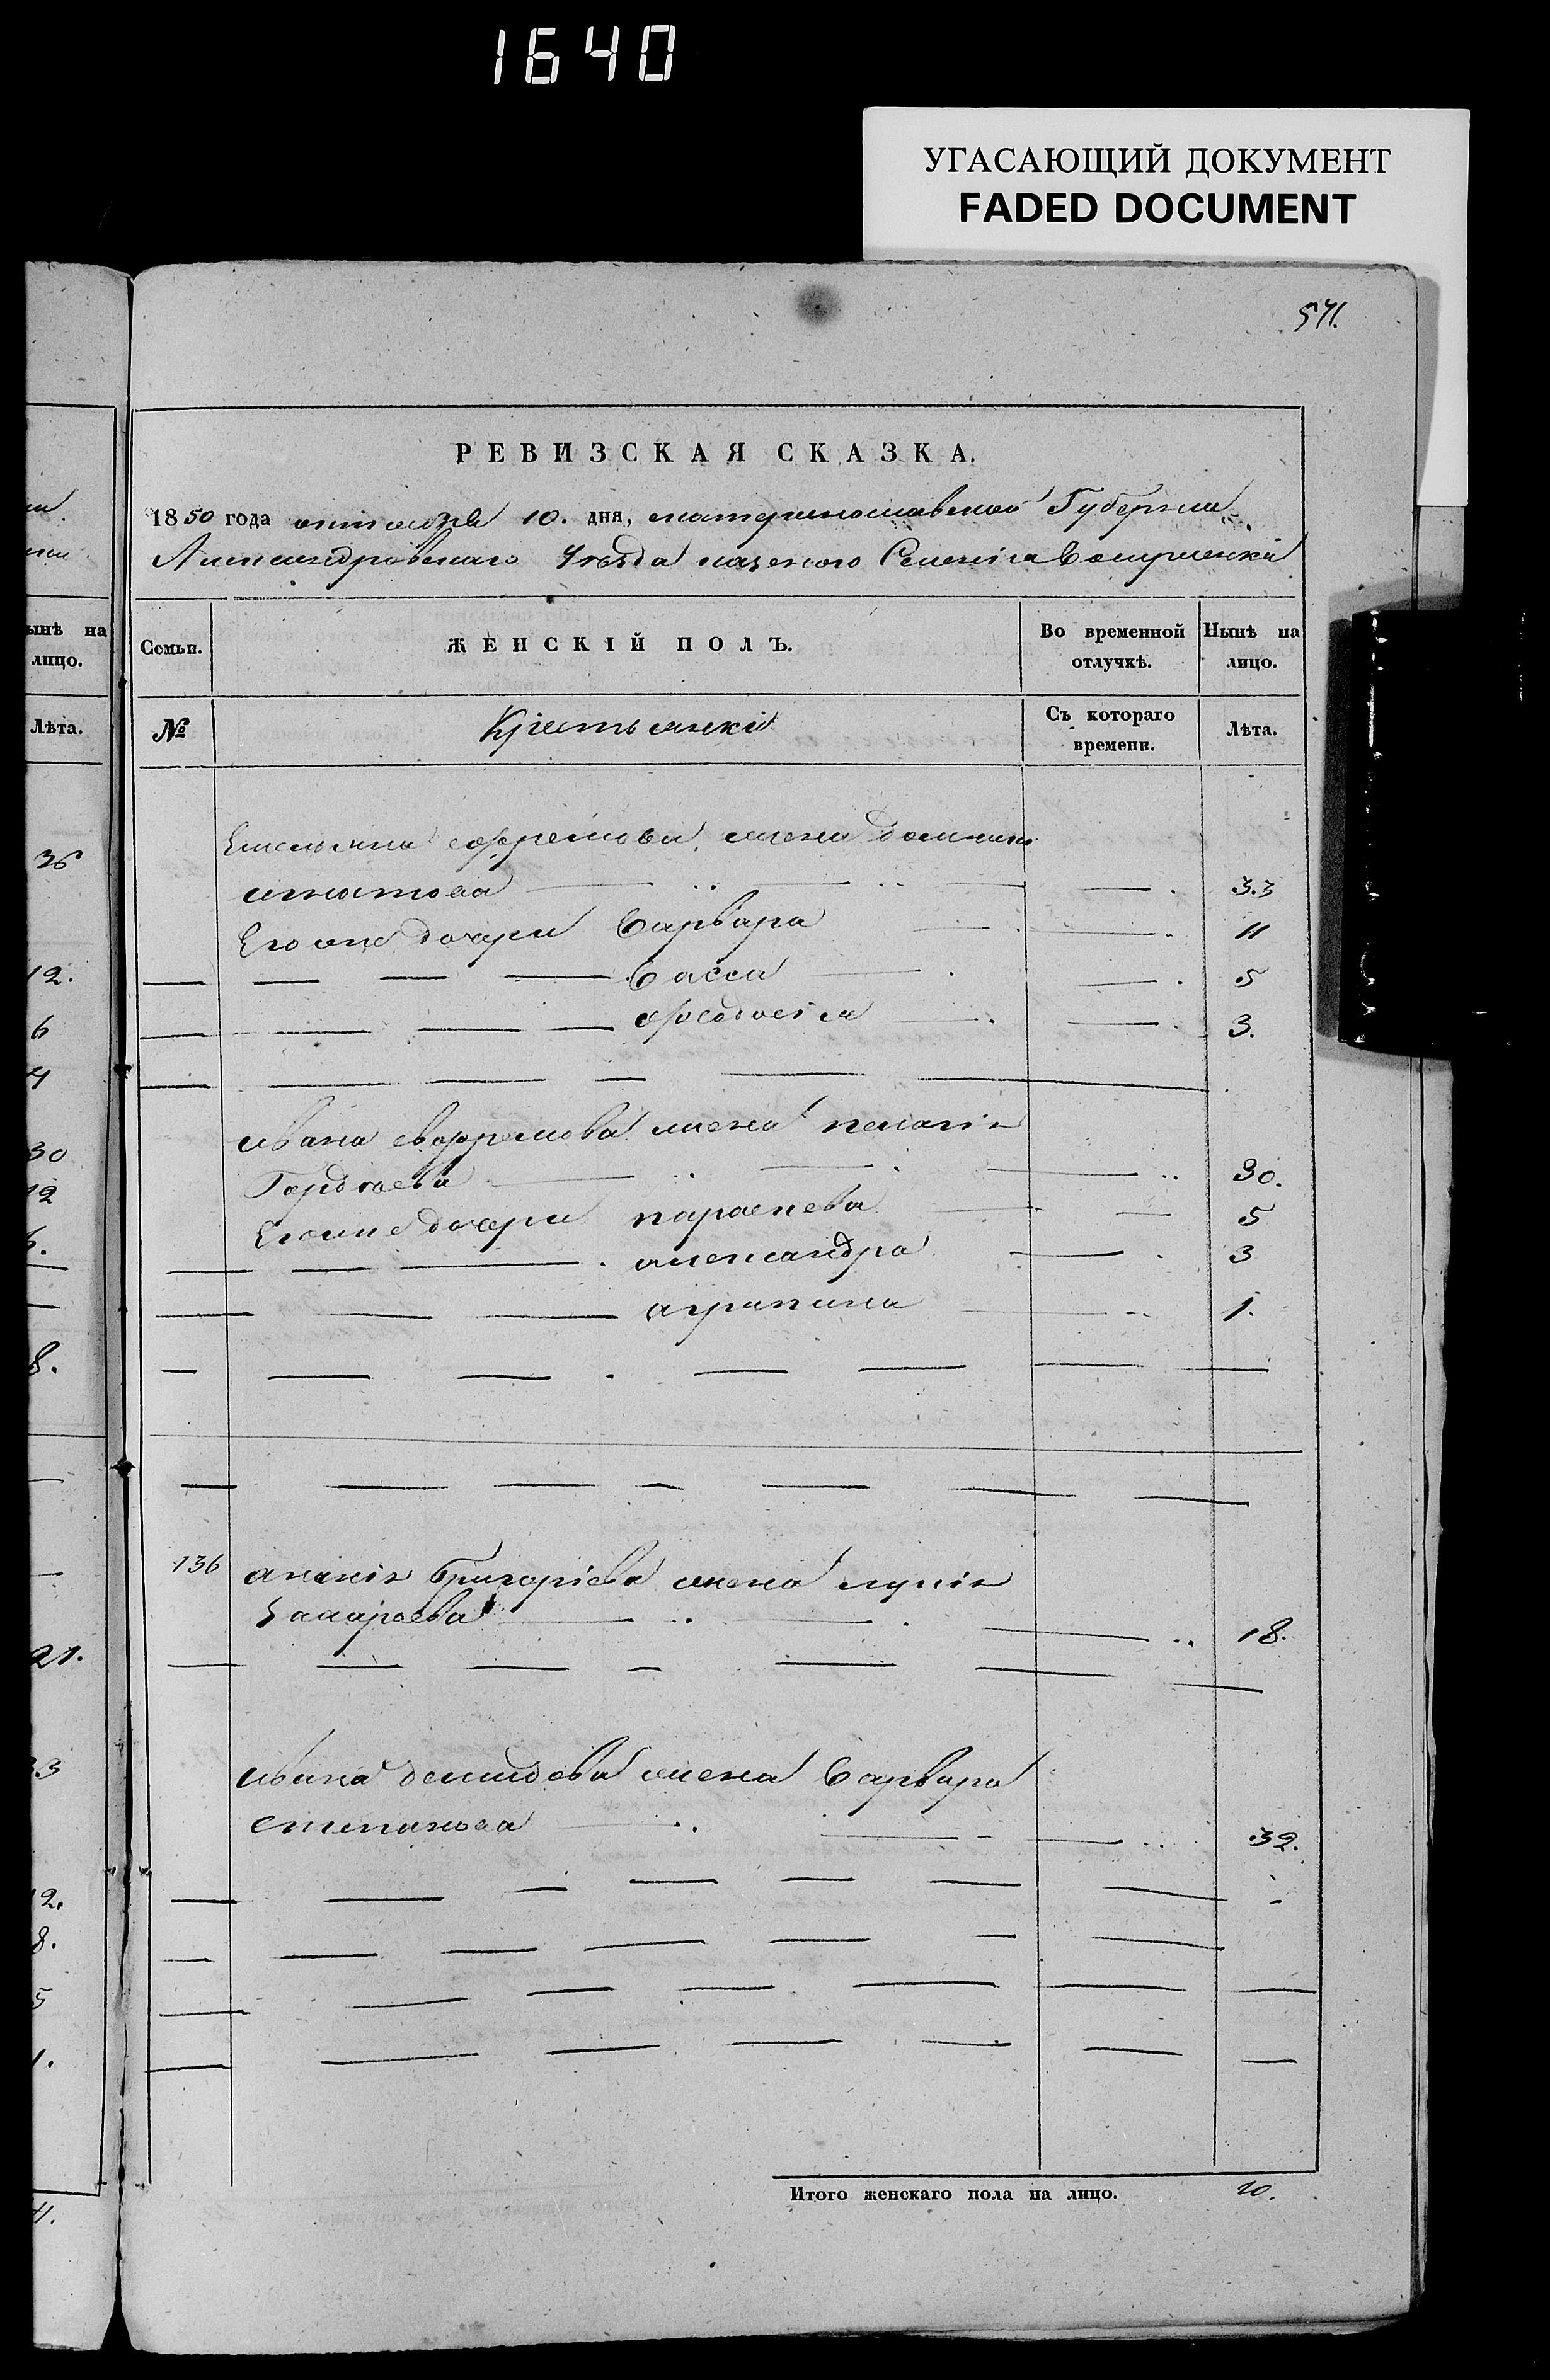 1640
УГАСАЮЩИЙ ДОКУМЕНТ
FADED DOCUMENT
571.
РЕВИЗСКАЯ СКАЗКА.
1850 года октября 10. дня, екатеринославской Губерніи
Александровскаго Уѣзда казенаго Селенія
Семьи.
ЖЕНСКІЙ ПОЛЪ.
Во временной отлучкѣ.
Нынѣ на лицо.
№
Крестьянки
Съ котораго времени.
Лѣта.
Емельяна ефремова жена домникия
игнатова 33
Егоже дочери Варвара 11
Васса 5
феодосія 3.
ивана евфремова жена пелагія
Гордѣева 30.
Егоже дочери параскева 5
александра 3
агрипина 1.
136 ананія Григорієва жена лукія
Захарова 18.
ивана демидова жена Варвара
степанова 32.
Итого женскаго пола на лицо. 10.
ынѣ на
лицо.
Лѣта.
36
12.
6
4
30
12
8.
21.
33
12.
8.
5
1.